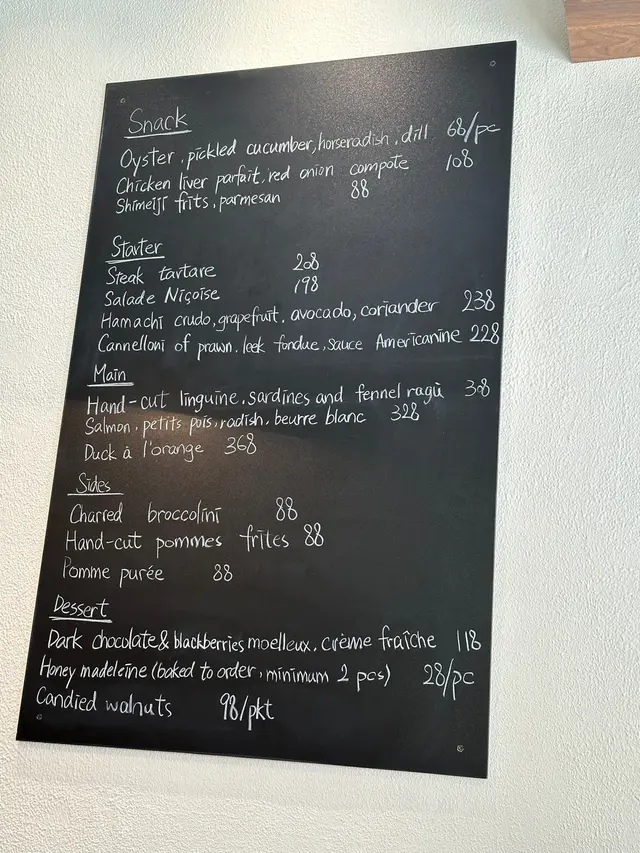 Snack
Oyster, pickled cucumber, horseradish, dill 68/pc
Chicken liver parfait, red onion compote 108
Shimeiji frits, parmesan 88
Starter
Steak tartare 208
Salade Niçoise 198
Hamachi crudo, grapefruit, avocado, coriander 238
Cannelloni of prawn, leek fondue, sauce Americanine 228
Main
Hand-cut linguine, sardines and fennel ragù 308
Salmon, petits pois, radish, beurre blanc 328
Duck à l'orange 368
Sides
Charred broccolini 88
Hand-cut pommes frites 88
Pomme purée 88
Dessert
Dark chocolate & blackberries moelleux, crème fraîche 118
Honey madeleine (baked to order, minimum 2 pcs) 28/pc
Candied walnuts 98/pkt